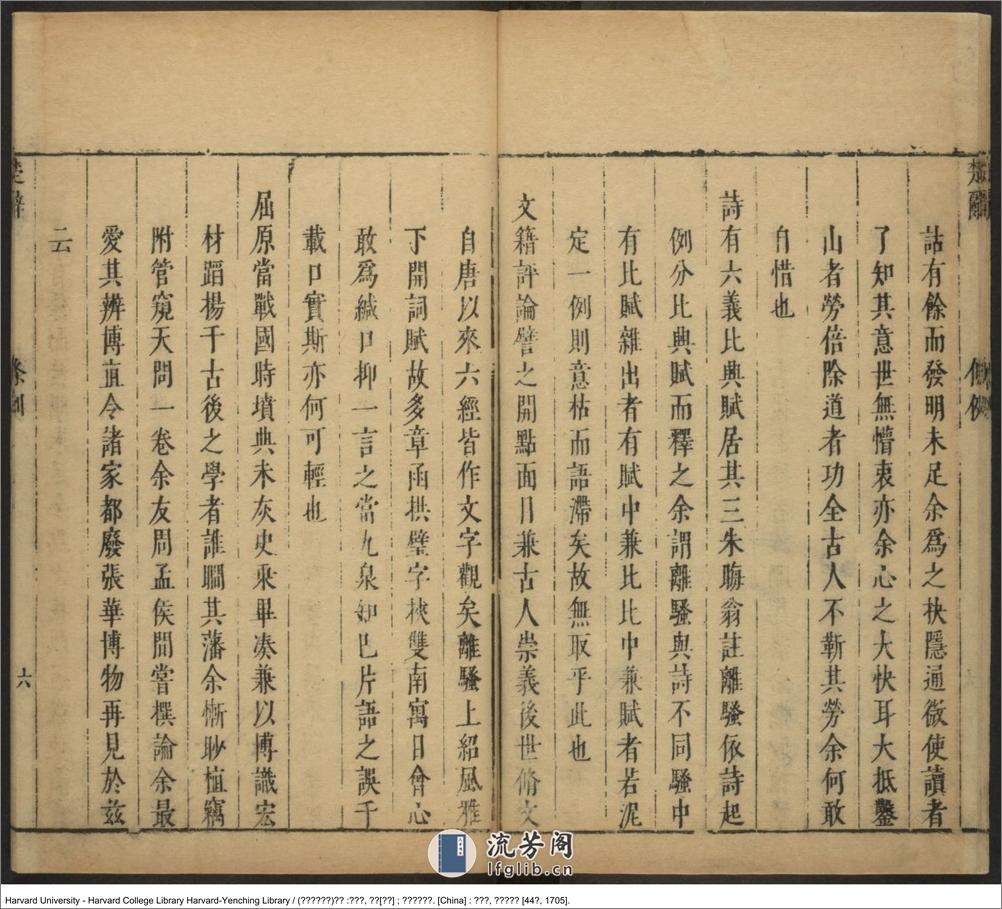 詁有餘而發明未足余爲之抉隱通微使讀者
了知其意世無懵衷亦余心之大快耳大抵鑿
山者勞倍除道者功全古人不靳其勞余何敢
自惜也
詩有六義比興賦居其三朱晦翁註離騷依詩起
例分比興賦而釋之余謂離騷與詩不同騷中
有比賦雜出者有賦中兼比比中兼賦者若泥
定一例則意枯而語滯矣故無取乎此也
文籍評論譬之開點面目兼古人崇義後世脩文
自唐以來六經皆作文字觀矣離騷上紹風雅
下開詞賦故多章函拱璧字校雙南寓目會心
敢爲緘口抑一言之當九泉知巳片語之誤千
載口實斯亦何可輕也
屈原當戰國時墳典未灰史乘畢湊兼以博識宏
材蹈楊千古後之學者誰闖其藩余慚眇植竊
附管窺天問一卷余友周孟侯間嘗撰論余最
愛其辨博直令諸家都廢張華博物再見於兹
云
楚辭
條例
六
流芳阁
lfglib.cn
Harvard University - Harvard College Library Harvard-Yenching Library / (??????)?? :???, ??[??] ; ??????. [China] : ???, ????? [44?, 1705].